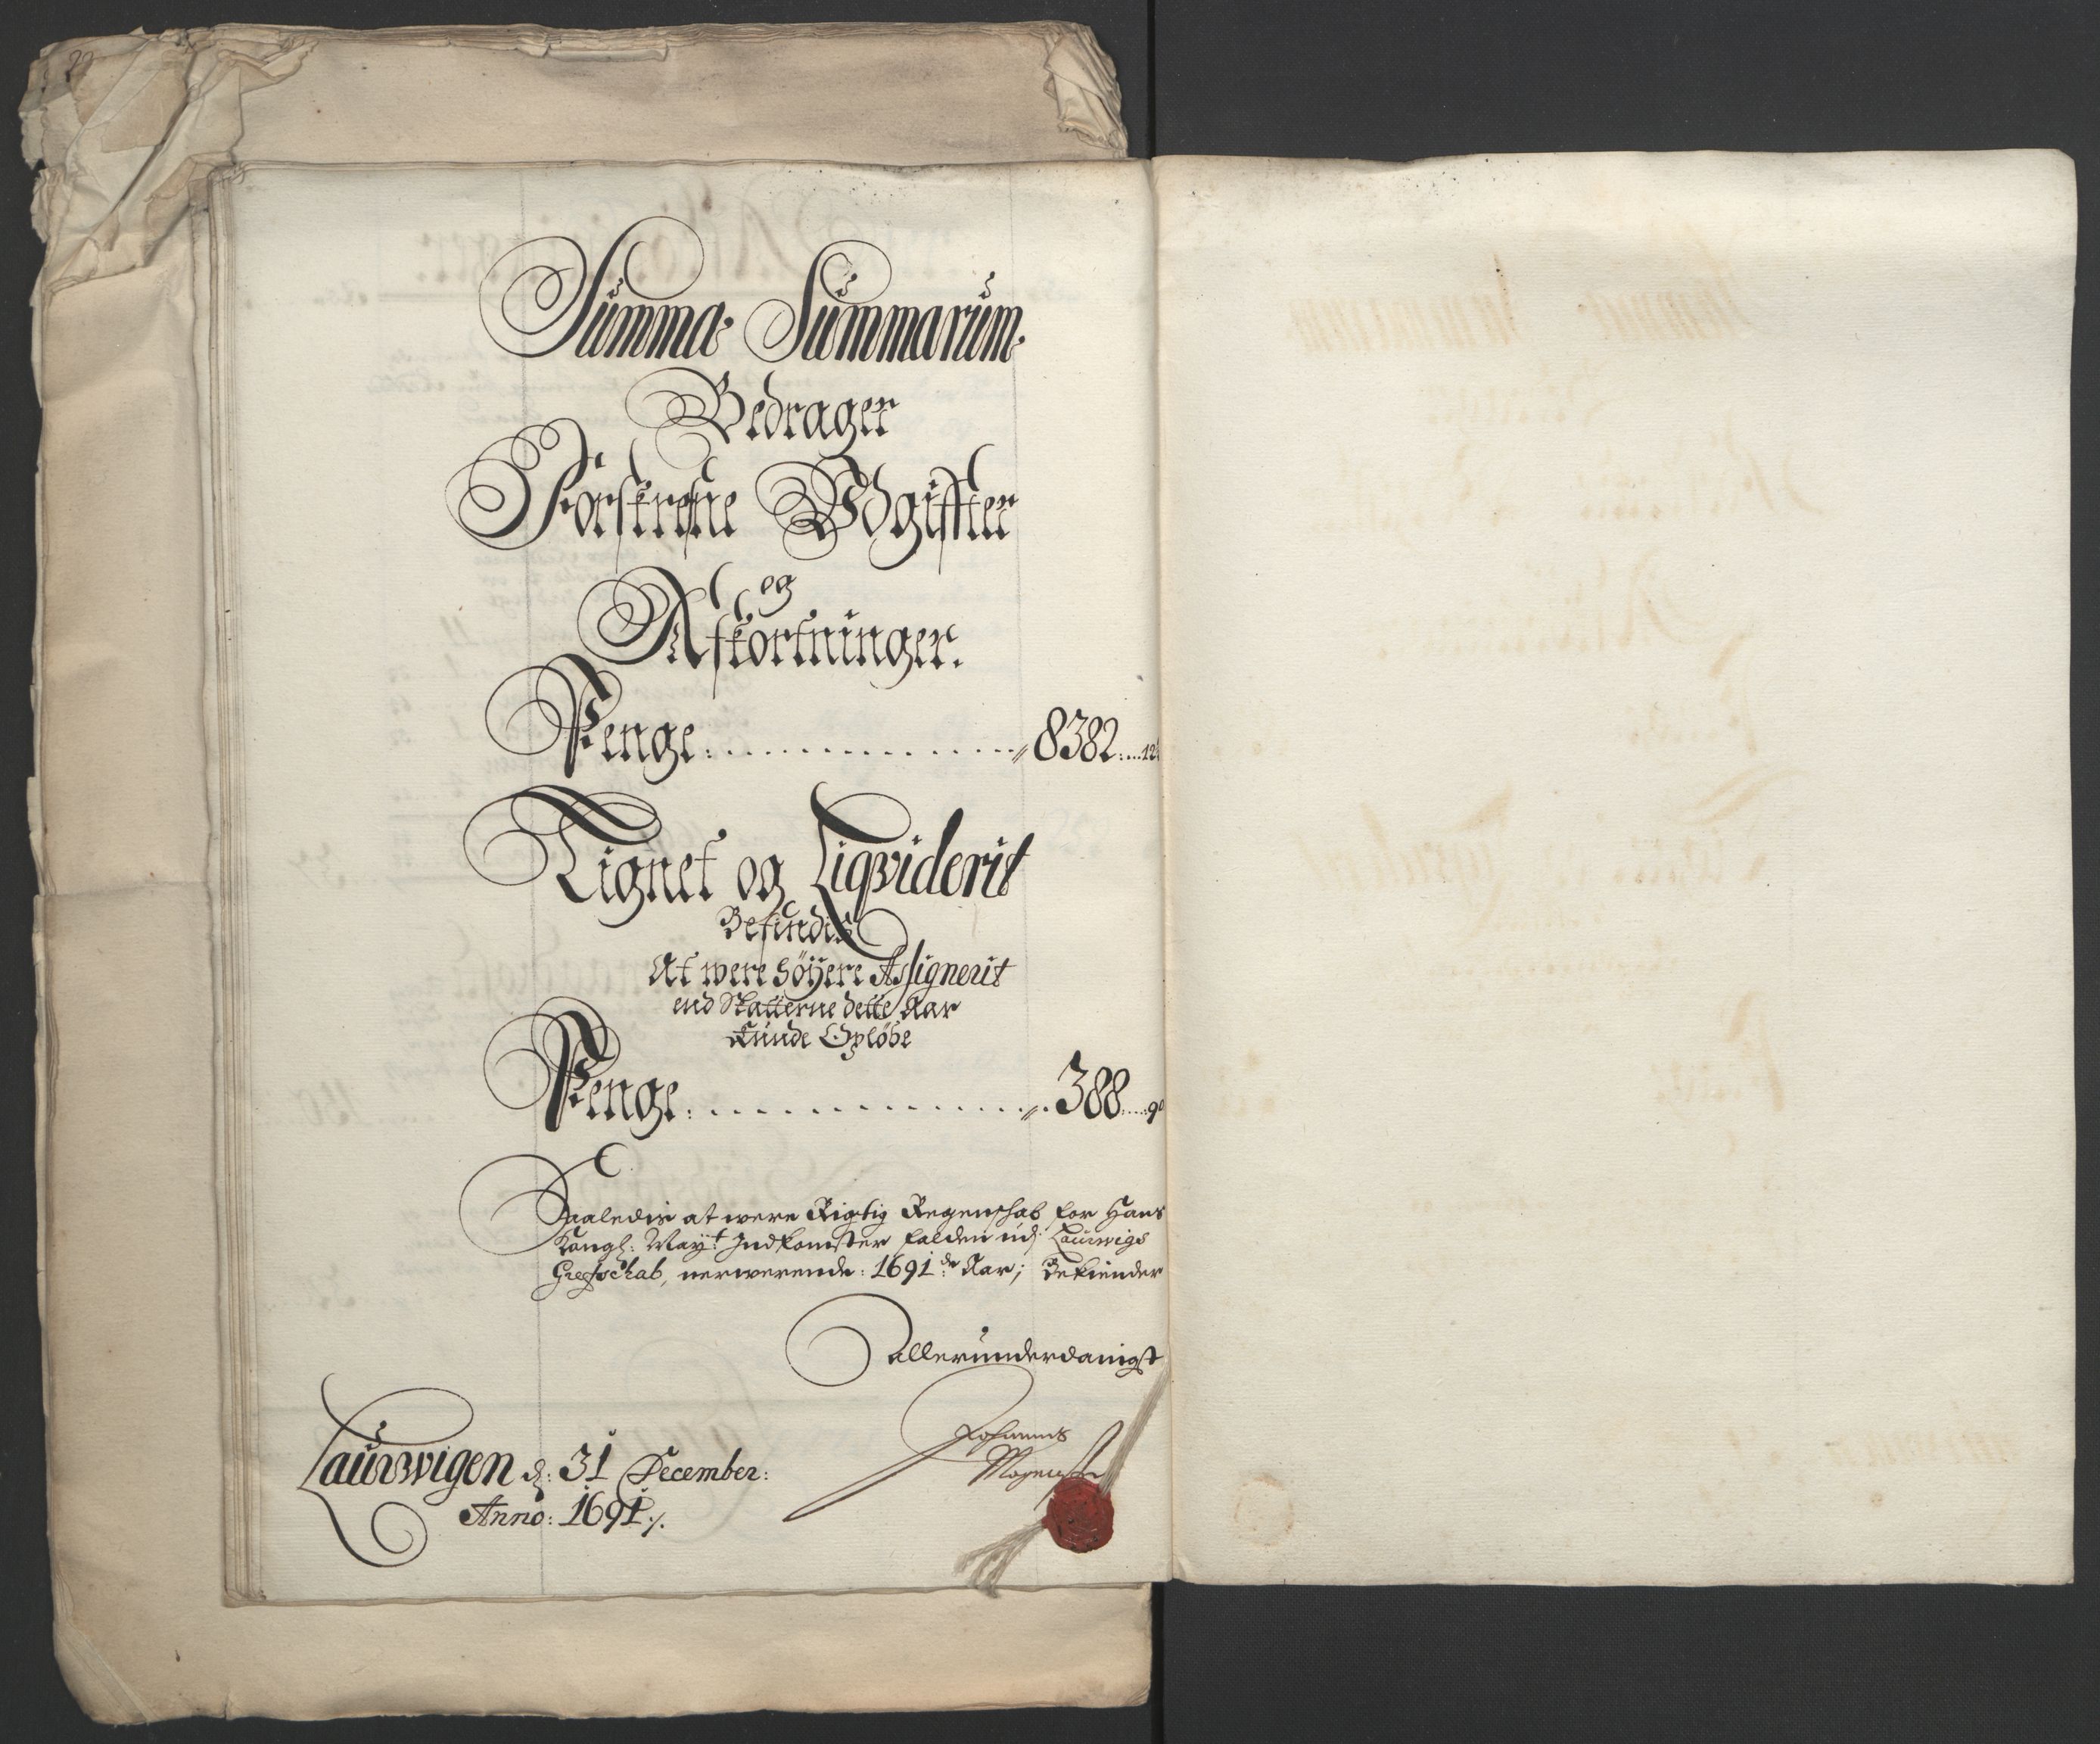 22
Summa Summarum
Bedrager
Forskrefne Wdgiffter
og
Afkortninger.
Penge: 8382: 12
Lignet og Liqviderit
Befindis
At were höyere Assignerit
end Skatterne dette Aar
kunde Opløbe
Penge: 388: 9
Saaledis at were Rigtig Regenskab for Hans
Kongl: May:t Indkomster falden udj Laurwigs
Grefschab, nerwerende: 1691de Aar; Bekiender
Allerunderdanigst
Johannes
Mogens
Laurwigen d: 31 December:
Anno: 1691 ⁒.